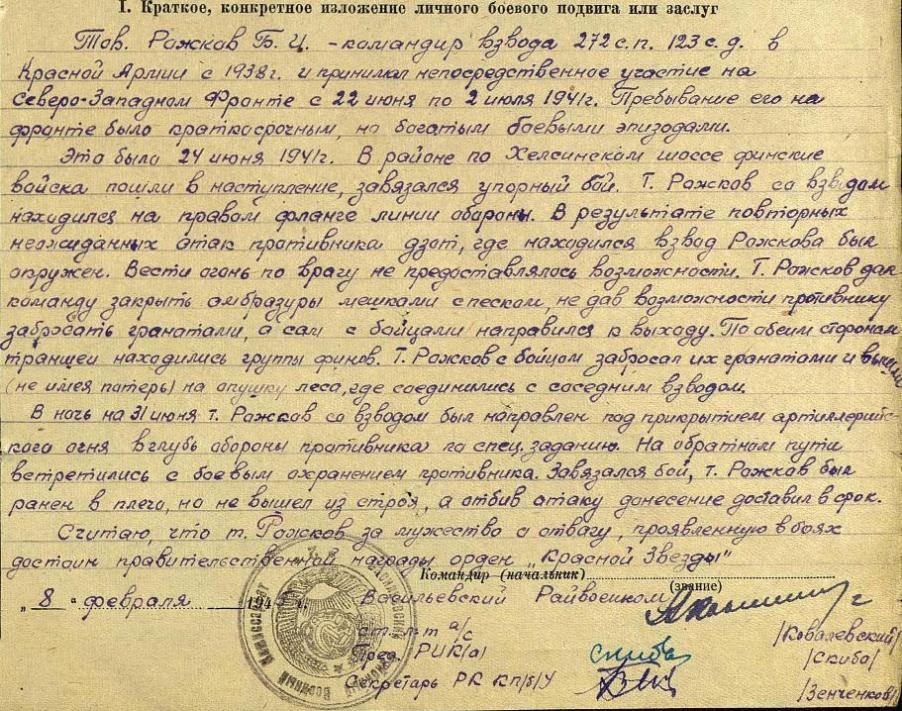 I. Краткое, конкретное изложение личного боевого подвига или заслуг
Тов. Рожков Б. И. - командир взвода 272 с.п. 123 с.д. в
Красной Армии с 1938 г. и принимал непосредственное участие на
Северо-Западном Фронте с 22 июня по 2 июля 1941 г. Пребывание его на
фронте было краткосрочным, но богатым боевыми эпизодами.
Это было 24 июня 1941 г. В районе по Хелсинском шоссе финские
войска пошли в наступление, завязался упорный бой. Т. Рожков со взводом
находился на правом фланге линии обороны. В результате повторных
неожиданных атак противника дзот, где находился взвод Рожкова был
окружен. Вести огонь по врагу не предоставлялось возможности. Т. Рожков дал
команду закрыть амбразуры мешками с песком, не дав возможности противнику
забросать гранатами, а сам с бойцами направился к выходу. По обеим сторонам
траншеи находились группы финов. Т. Рожков с бойцом забросал их гранатами и
(не имея потерь) на опушку леса, где соединились с соседним взводом.
В ночь на 31 июня т. Рожков со взводом был направлен под прикрытием артиллерий-
ского огня вглубь обороны противника по спец. заданию. На обратном пути
встретились с боевым охранением противника. Завязался бой, т. Рожков был
ранен в плечо, но не вышел из строя, а отбив атаку донесение доставил в срок.
Считаю, что т. Рожков за мужество и отвагу, проявленную в боях
достоин правительственной награды орден „Красной Звезды"
Командир (начальник)
(звание)
„ 8 " февраля 194 г.
Васильевский Райвоенком
ст. л-т а/с /Ковалевский/
Пред. РИК/а/ Скиба /Скибо/
Секретарь РК КП/б/У /Зенченков/